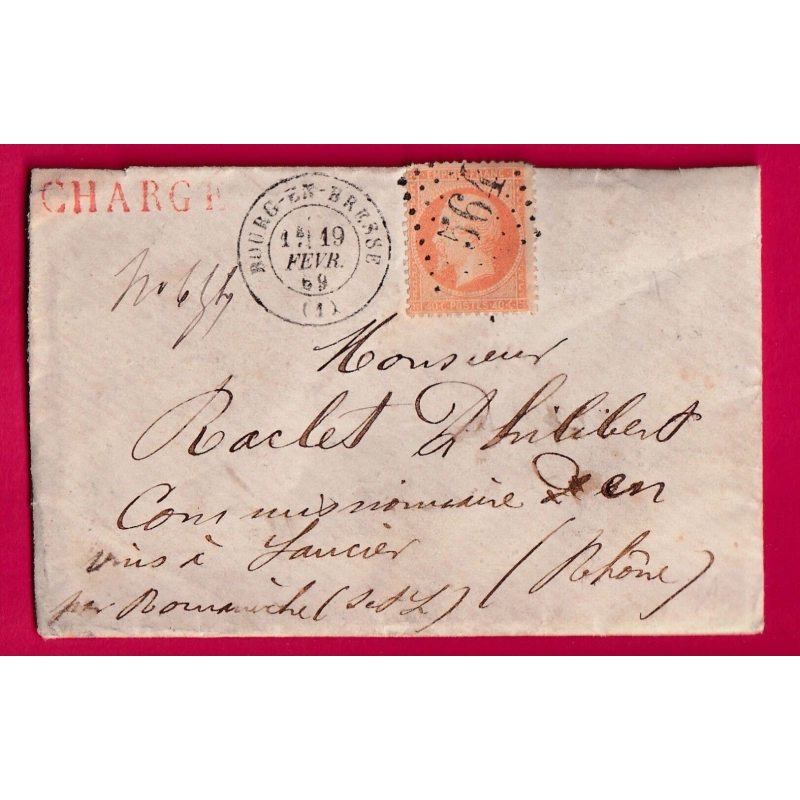 CHARGE
BOURG-EN-BRESSE
19
FEVR.
69
(1)
EMPIRE FRANC
564
40 C POSTES 40 C
Monsieur
Raclet Philibert
Commissionnaire en
vins à Lancier (Rhône)
par Romanèche (S et L)